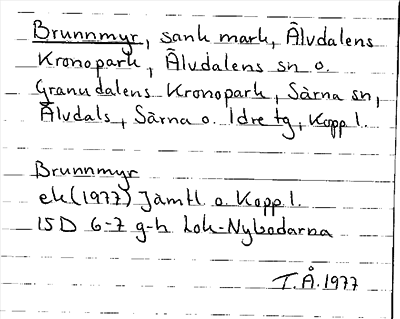 Brunnmyr, sank mark, Älvdalens
Kronopark, Älvdalens sn o.
Granudalens Kronopark, Särna sn,
Älvdals, Särna o. Idre tg, Kopp l.
Brunnmyr
ek (1977) Jämtl o. Kopp l.
15D 6-7 g-h Lok-Nybodarna
T.Å. 1977